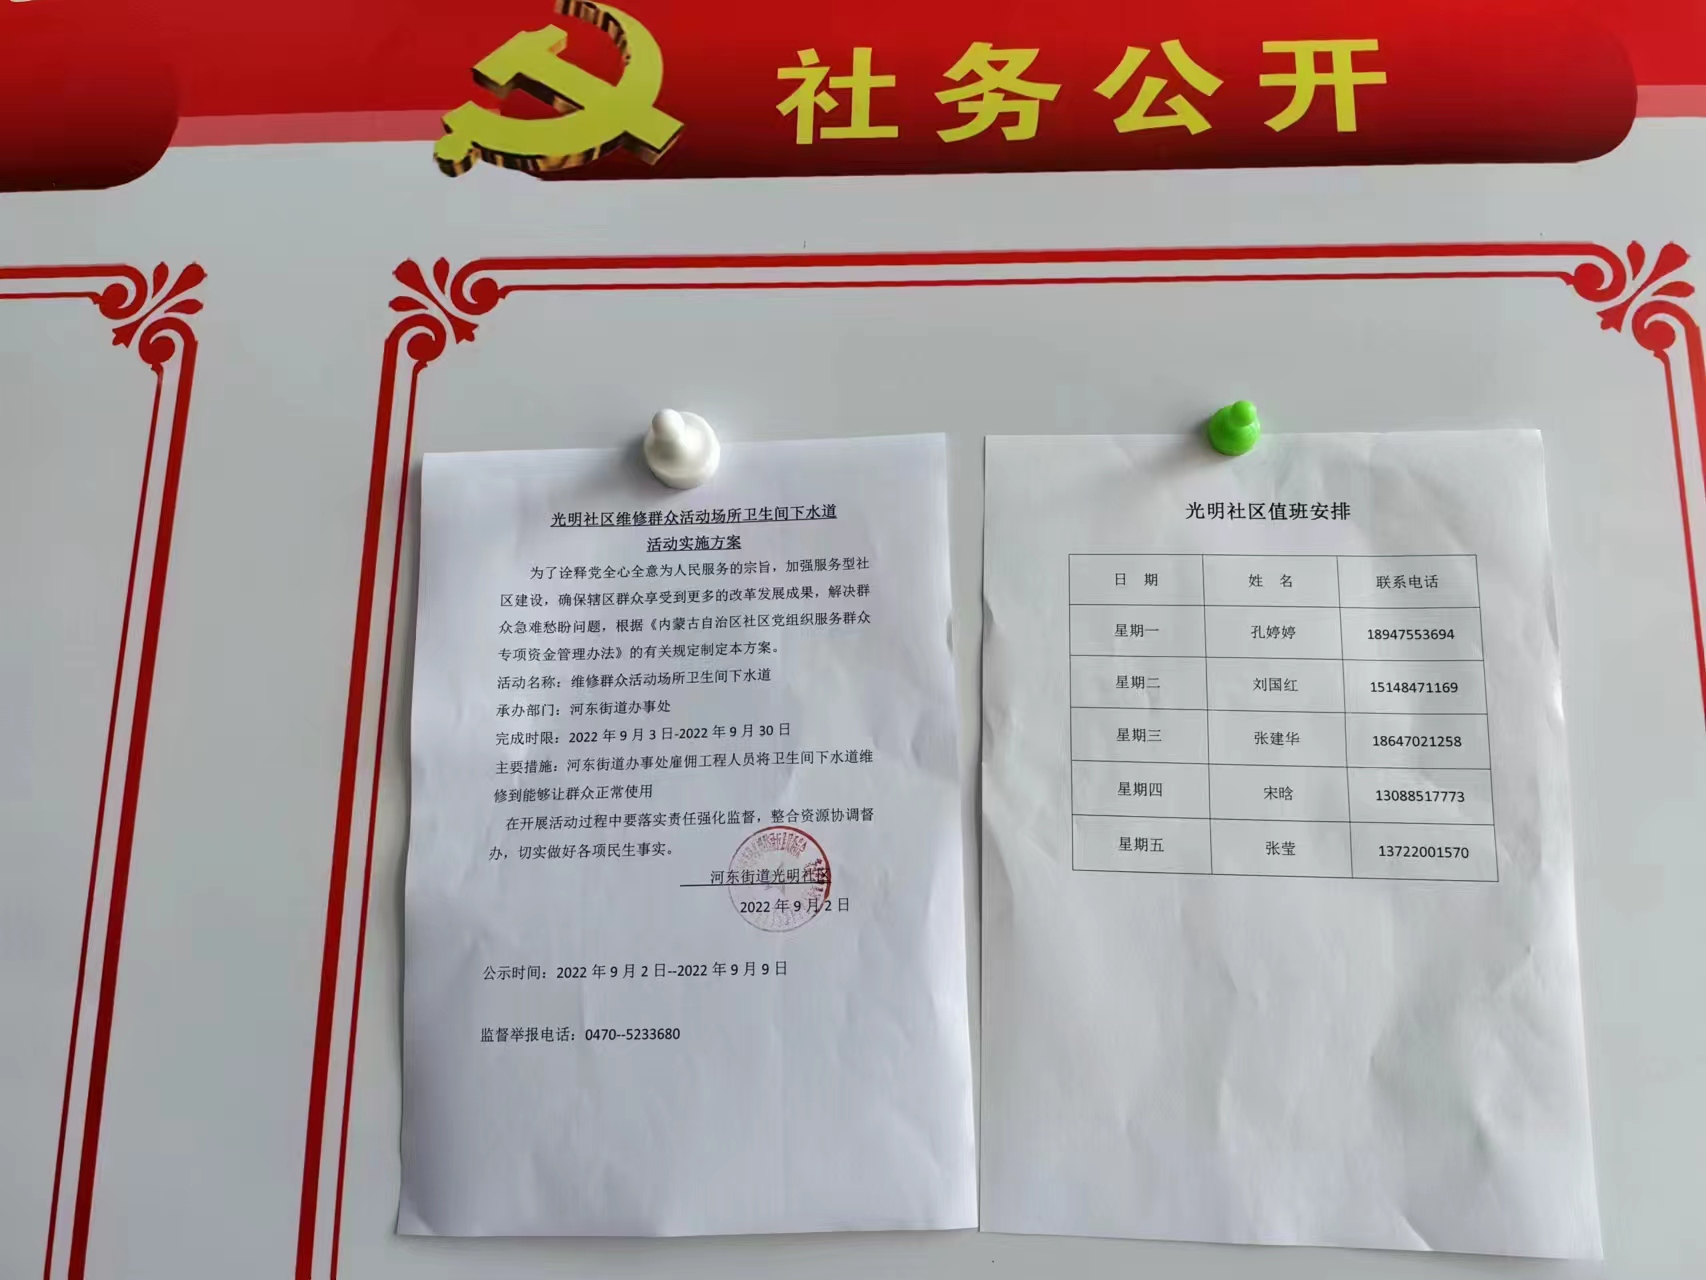 社务公开
光明社区维修群众活动场所卫生间下水道
活动实施方案
为了诠释党全心全意为人民服务的宗旨，加强服务型社
区建设，确保辖区群众享受到更多的改革发展成果，解决群
众急难愁盼问题，根据《内蒙古自治区社区党组织服务群众
专项资金管理办法》的有关规定制定本方案。
活动名称：维修群众活动场所卫生间下水道
承办部门：河东街道办事处
完成时限：2022年9月3日-2022年9月30日
主要措施：河东街道办事处雇佣工程人员将卫生间下水道维
修到能够让群众正常使用
在开展活动过程中要落实责任强化监督，整合资源协调督
办，切实做好各项民生事实。
河东街道光明社区
2022年9月2日
公示时间：2022年9月2日--2022年9月9日
监督举报电话：0470--5233680
光明社区值班安排
日 期 姓 名 联系电话
星期一 孔婷婷 18947553694
星期二 刘国红 15148471169
星期三 张建华 18647021258
星期四 宋晗 13088517773
星期五 张莹 13722001570